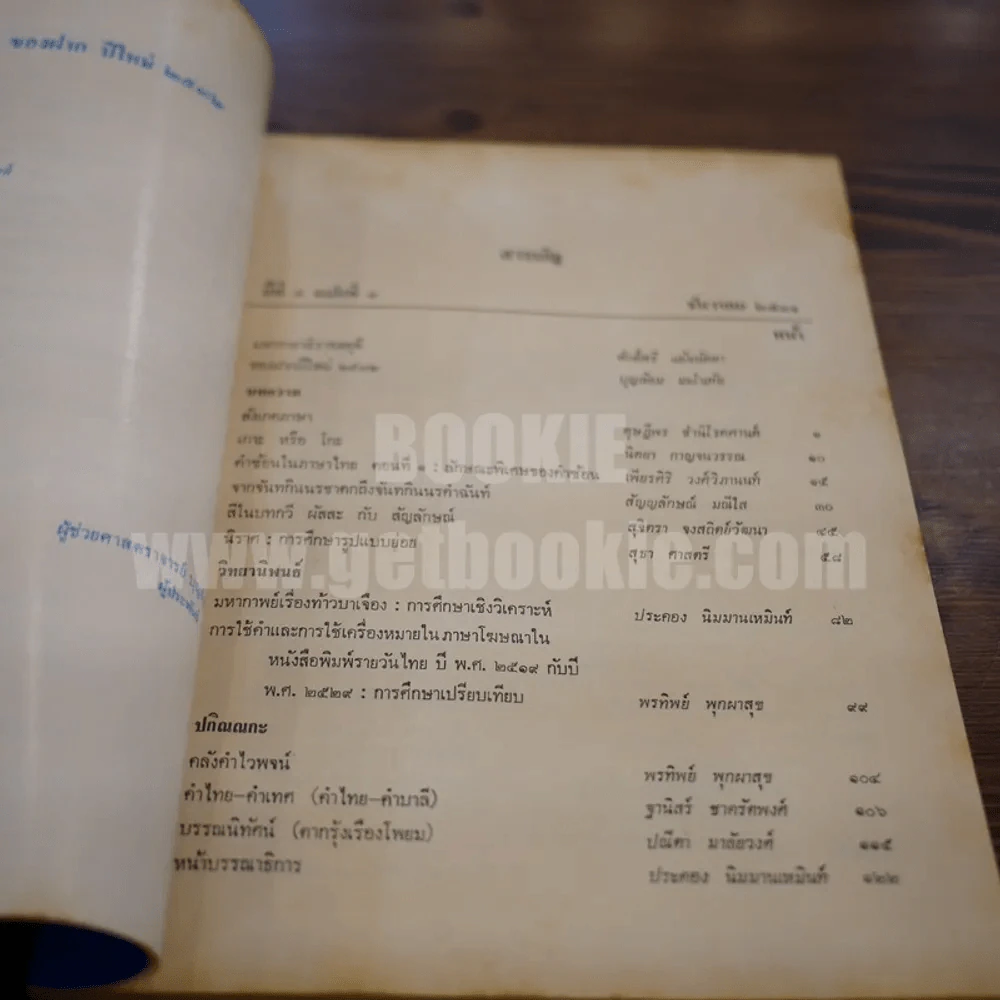 ของฝาก ปีใหม่ ๒๕๓๒
ผู้ช่วยศาสตราจารย์
สารบัญ
ปีที่ ๓ ฉบับที่ ๑
ธันวาคม ๒๕๓๑
หน้า
ของฝากปีใหม่ ๒๕๓๒
บทความ
สังเกตภาษา ดุษฎีพร ชำนิโรคศานต์ ๑
เกาะ หรือ โกะ นิตยา กาญจนวรรณ ๑๐
คำซ้อนในภาษาไทย ตอนที่ ๑ : ลักษณะพิเศษของคำซ้อน เพียรศิริ วงศ์วิภานนท์ ๑๕
จากจันทกินนรชาดกถึงจันทกินนรคำฉันท์ สัญญลักษณ์ มณีไส ๓๐
สีในบทกวี ผัสสะ กับ สัญลักษณ์ สุจิตรา จงสถิตย์วัฒนา ๔๕
นิราศ : การศึกษารูปแบบย่อย สุชา ศาสตรี ๕๘
วิทยานิพนธ์
มหากาพย์เรื่องท้าวบาเจือง : การศึกษาเชิงวิเคราะห์ ประคอง นิมมานเหมินท์ ๘๒
การใช้คำและการใช้เครื่องหมายในภาษาโฆษณาใน
หนังสือพิมพ์รายวันไทย ปี พ.ศ. ๒๕๑๙ กับปี
พ.ศ. ๒๕๒๙ : การศึกษาเปรียบเทียบ พรทิพย์ พุกผาสุข ๙๙
ปกิณณกะ
คลังคำไวพจน์ พรทิพย์ พุกผาสุข ๑๐๔
คำไทย-คำเทศ (คำไทย-คำบาลี) ฐานิสร์ ชาครัตพงศ์ ๑๐๖
บรรณนิทัศน์ (คากรุ้งเรืองโพยม) ปณิตา มาลัยวงศ์ ๑๑๕
หน้าบรรณาธิการ ประคอง นิมมานเหมินท์ ๑๒๒
BOOKIE
www.getbookie.com